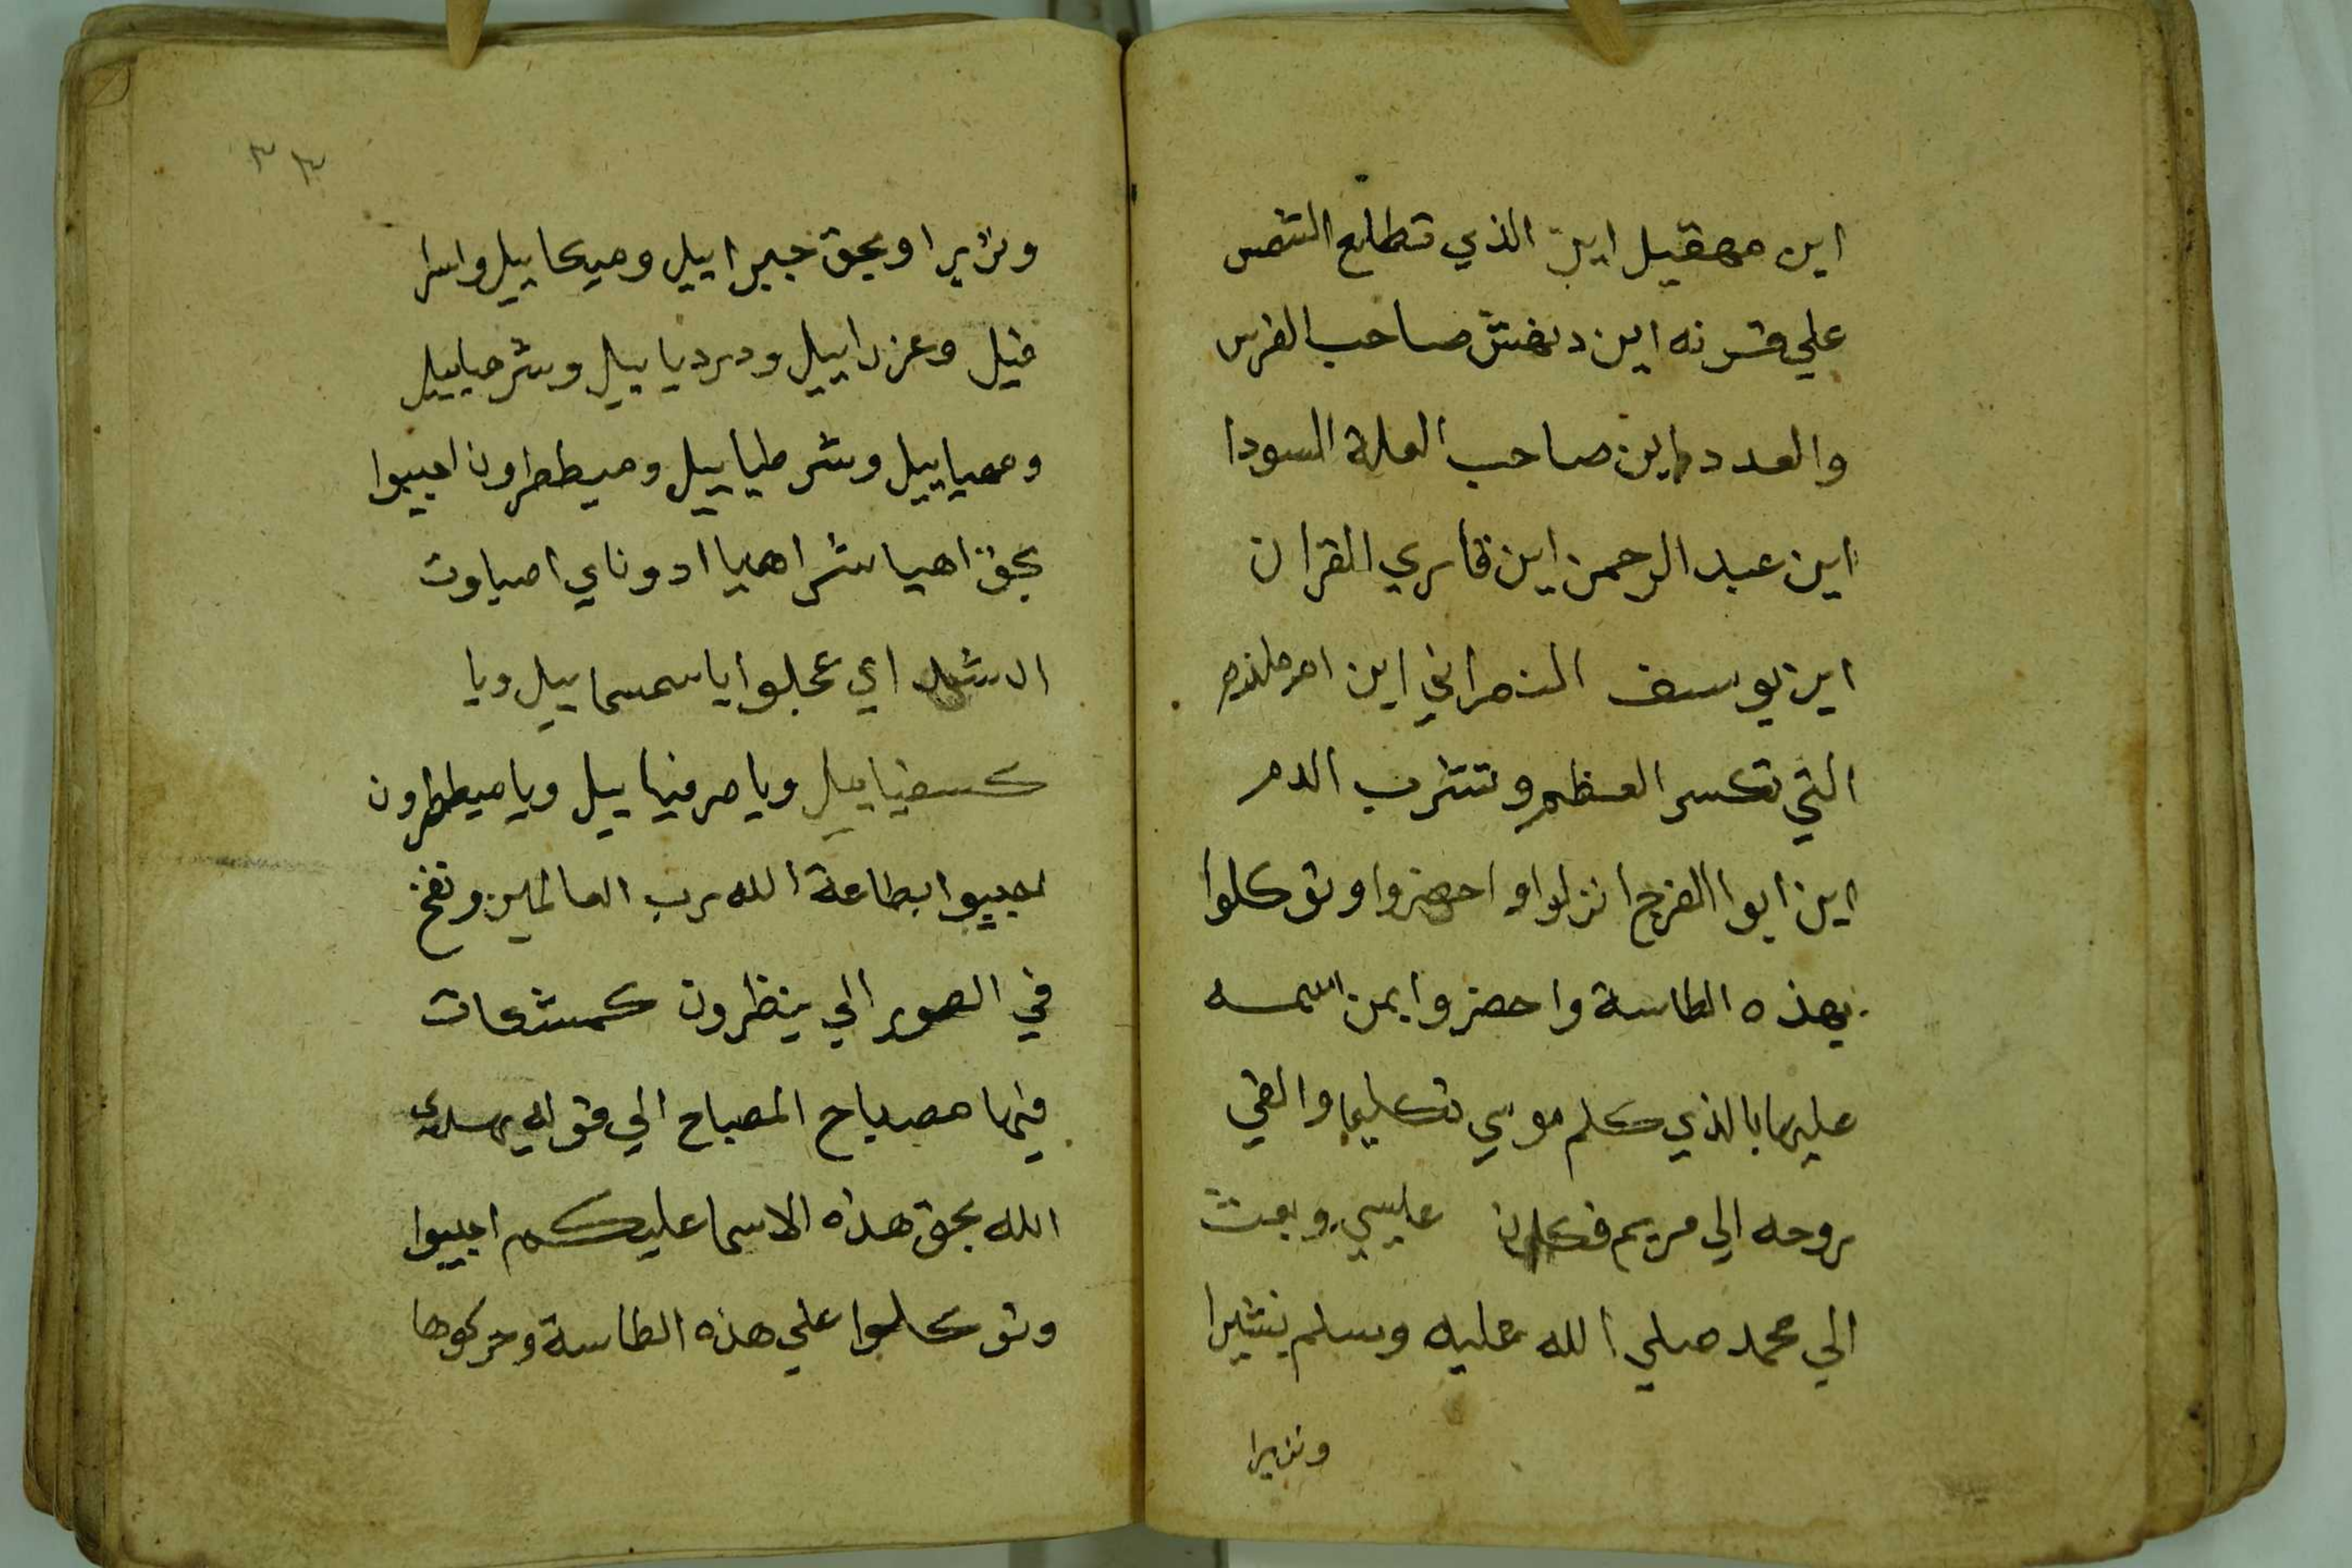 اين مهقيل اين الذي تطلع الشمس
علي قرنه اين دنهش صاحب الفرس
والعدد اين صاحب العلة السودا
اين عبد الرحمن اين قاري القران
اين يوسف النصراني اين ام ملذم
التي تكسر العظم وتشرب الدم
اين ابوا الفرج انزلوا واحضروا وتوكلوا
بهذه الطاسة واحضروا بمن اسمه
عليها بالذي كلم موسي تكليما والقي
روحه الي مريم فكان عليسي وبعث
الي محمد صلي الله عليه وسلم بشيرا
ونزيرا
٣٣
ونزيرا وبحق جبراييل وميكاييل واسرا
فيل وعزراييل ودردياييل وشرحياييل
وهمياييل وشرطياييل وميططرون اجيبوا
بحق اهيا شراهيا ادوناي اصباوت
ال شداي عجلوا يا سمسماييل ويا
كسفياييل ويا صرفياييل ويا ميططرون
اجيبوا بطاعة الله رب العالمين ونفخ
في الصور الي ينظرون كمشكات
فيها مصباح المصباح الي قوله يهدي
الله بحق هذه الاسما عليكم اجيبوا
وتوكلوا علي هذه الطاسة وحركوها